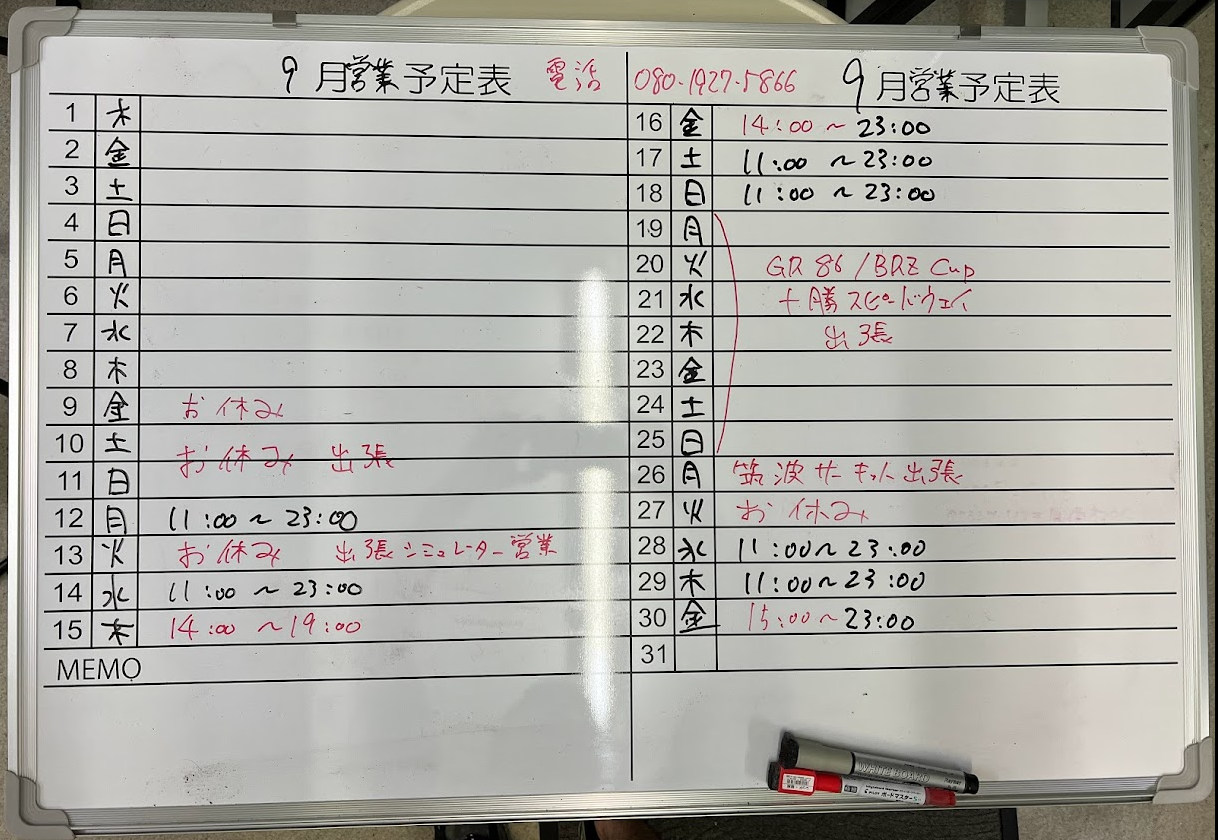 9月営業予定表 電話 080-1927-5866 9月営業予定表
1 木
2 金
3 土
4 日
5 月
6 火
7 水
8 木
9 金 お休み
10 土 お休み 出張
11 日
12 月 11:00 ~ 23:00
13 火 お休み 出張シミュレーター営業
14 水 11:00 ~ 23:00
15 木 14:00 ~19:00
MEMO
16 金 14:00 ~ 23:00
17 土 11:00 ~ 23:00
18 日 11:00 ~ 23:00
19 月
20 火 GR 86 / BRZ Cup
21 水 十勝スピードウェイ
22 木 出張
23 金
24 土
25 日
26 月 筑波サーキット出張
27 火 お休み
28 水 11:00~ 23:00
29 木 11:00~ 23:00
30 金 15:00~ 23:00
31
WHITEBOARD
ボードマスター